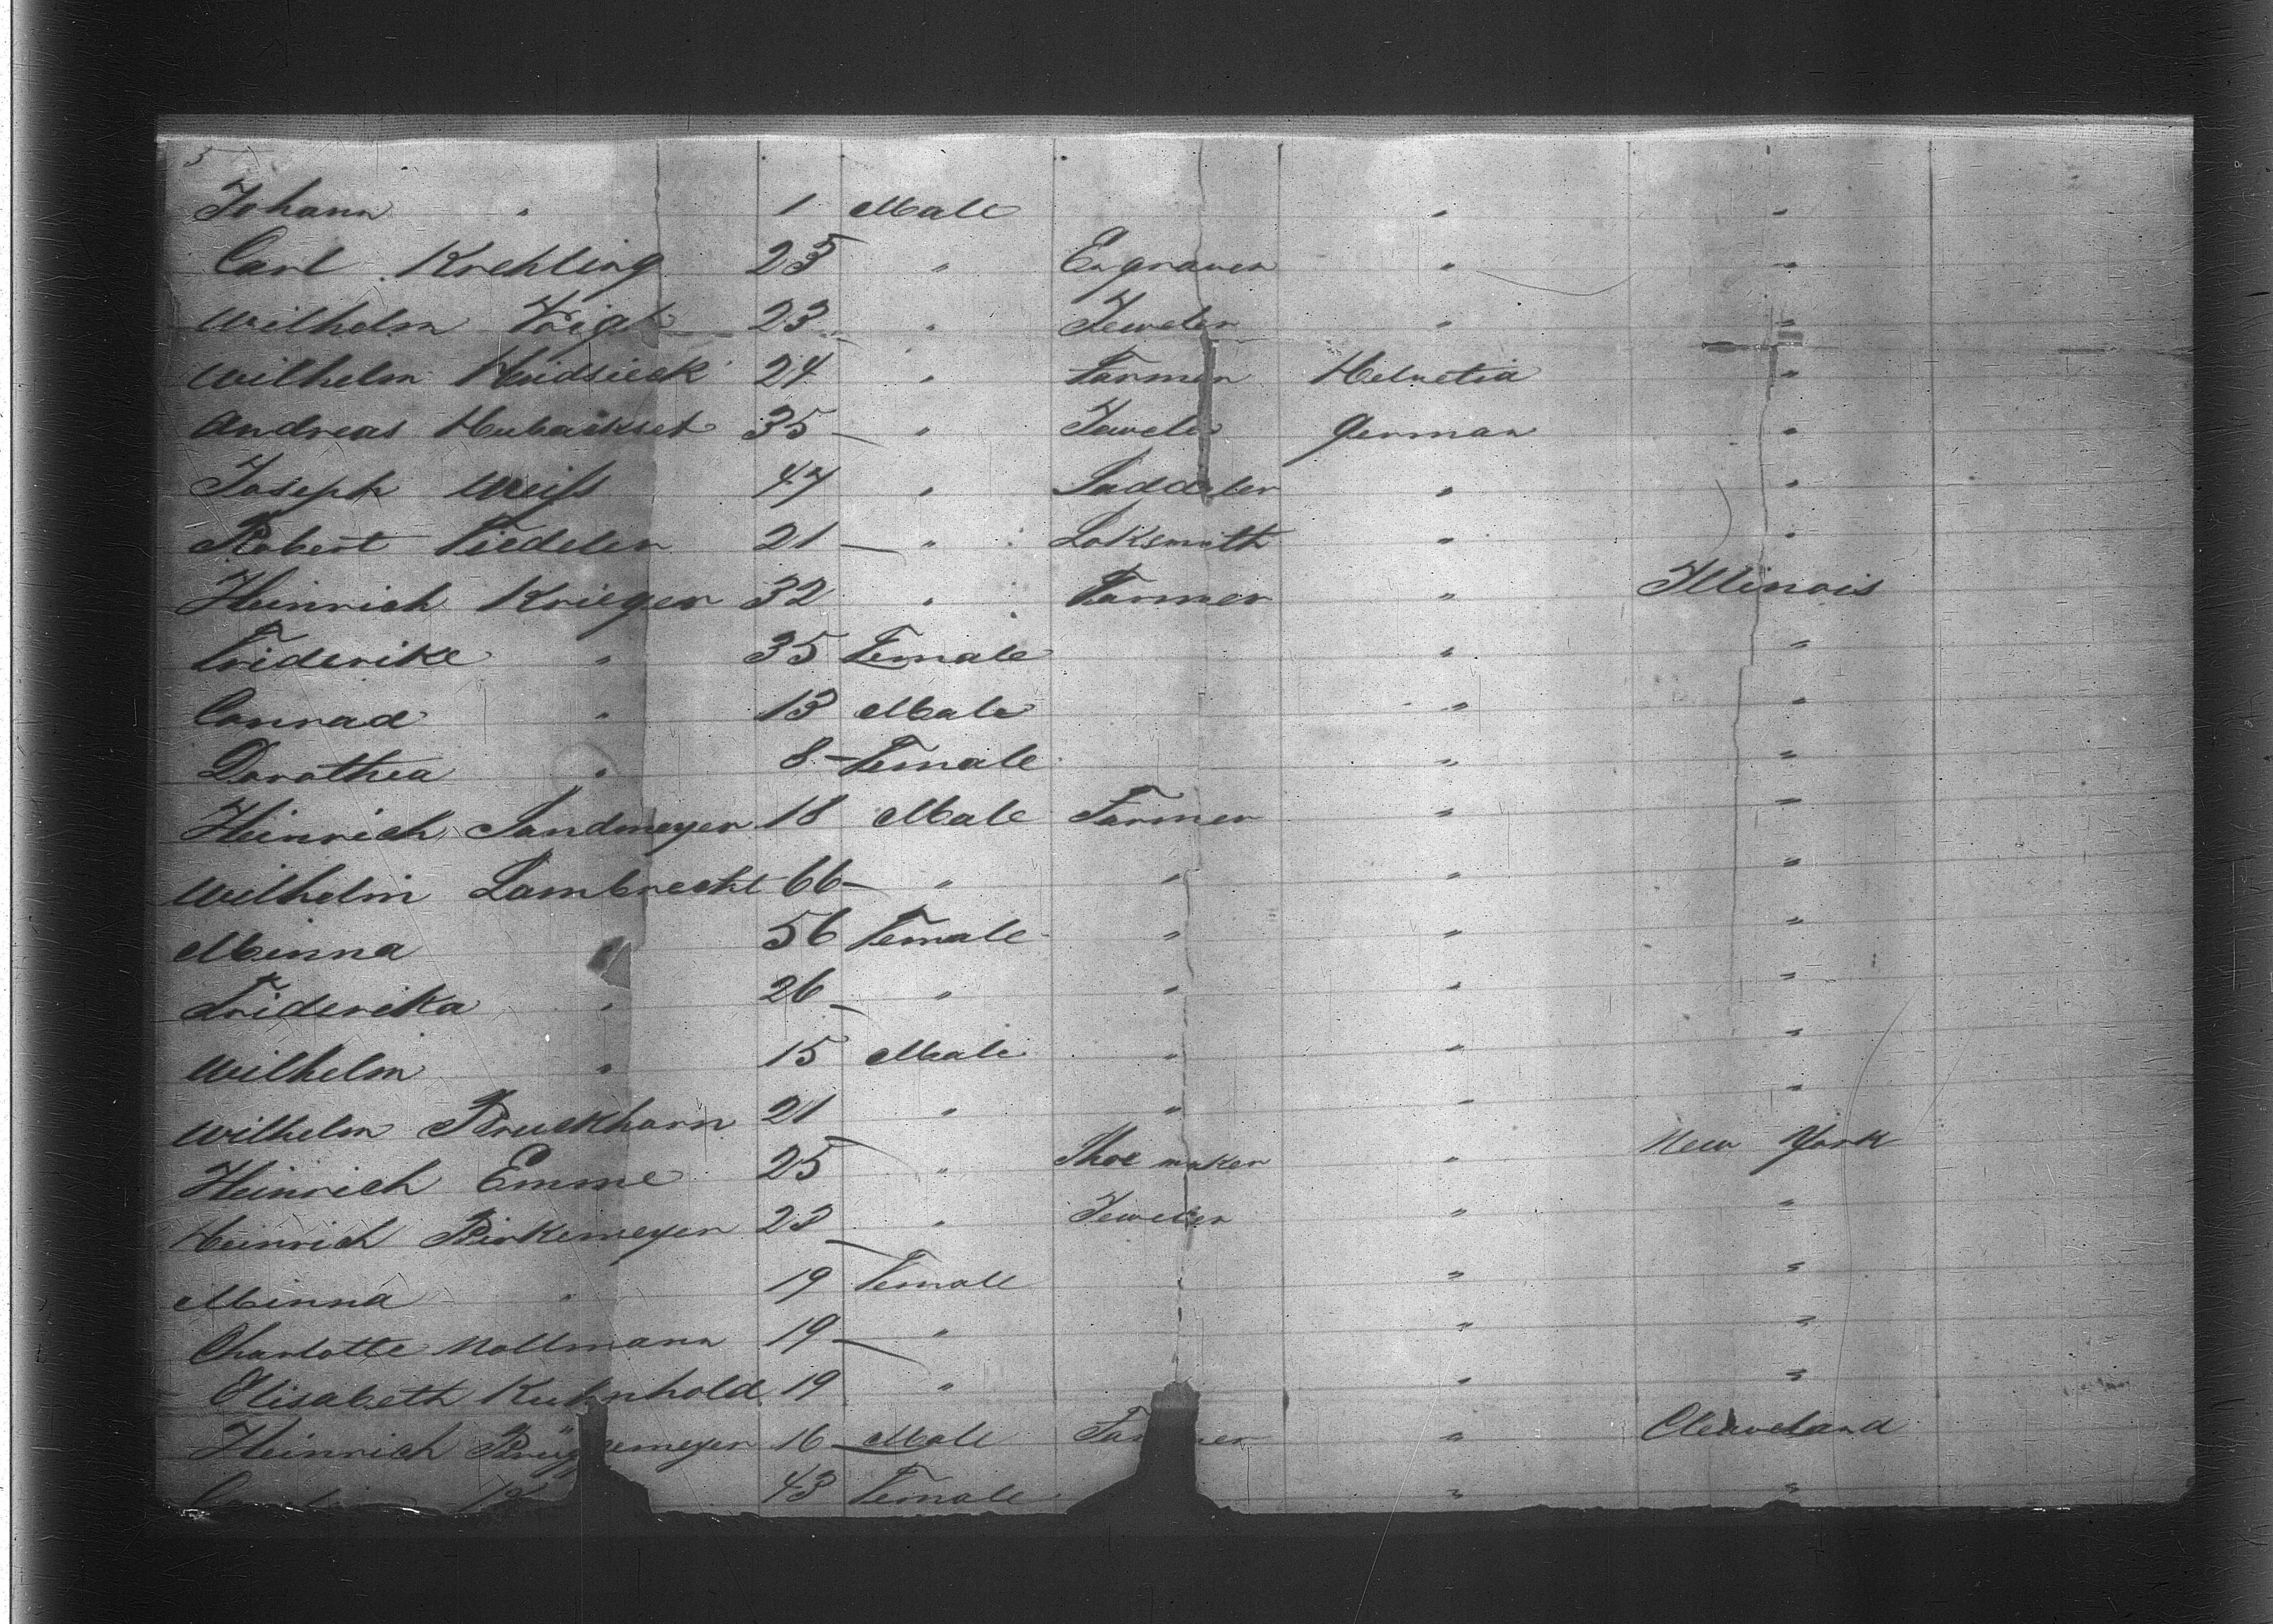 5
Johann " 1 Male " "
Carl Krehling 25 " Engraver " "
Wilhelm Voigt 23 " Jeweler " "
Wilhelm Heidsieck 24 " Farmer Helvetia "
Andreas 35 " Jeweler German "
Joseph Weiß 47 " Saddeler " "
Robert Fiedeler 21 " Loksmith " "
Heinrich Krieger 32 " Farmer " Illinois
Friderike " 35 Female " "
Conrad " 13 Male " "
Dorothea " 8 Female " "
Heinrich Sandmeyer 18 Male Farmer " "
Wilhelm Lambrecht 66 " " " "
Minna 56 Female " " "
Friderika " 26 " " " "
Wilhelm " 15 Male " " "
Wilhelm Bruckhorn 21 " " " "
Heinrich Emme 25 " Shoe maker " New York
Heinrich Birkemeyer 23 " Jeweler " "
Minna " 19 Female " "
Charlotte Nollmann 19 " " "
Elisabeth Kuhnhold 19 " " "
Heinrich 16 Male Farmer " Cleaveland
43 Female " "